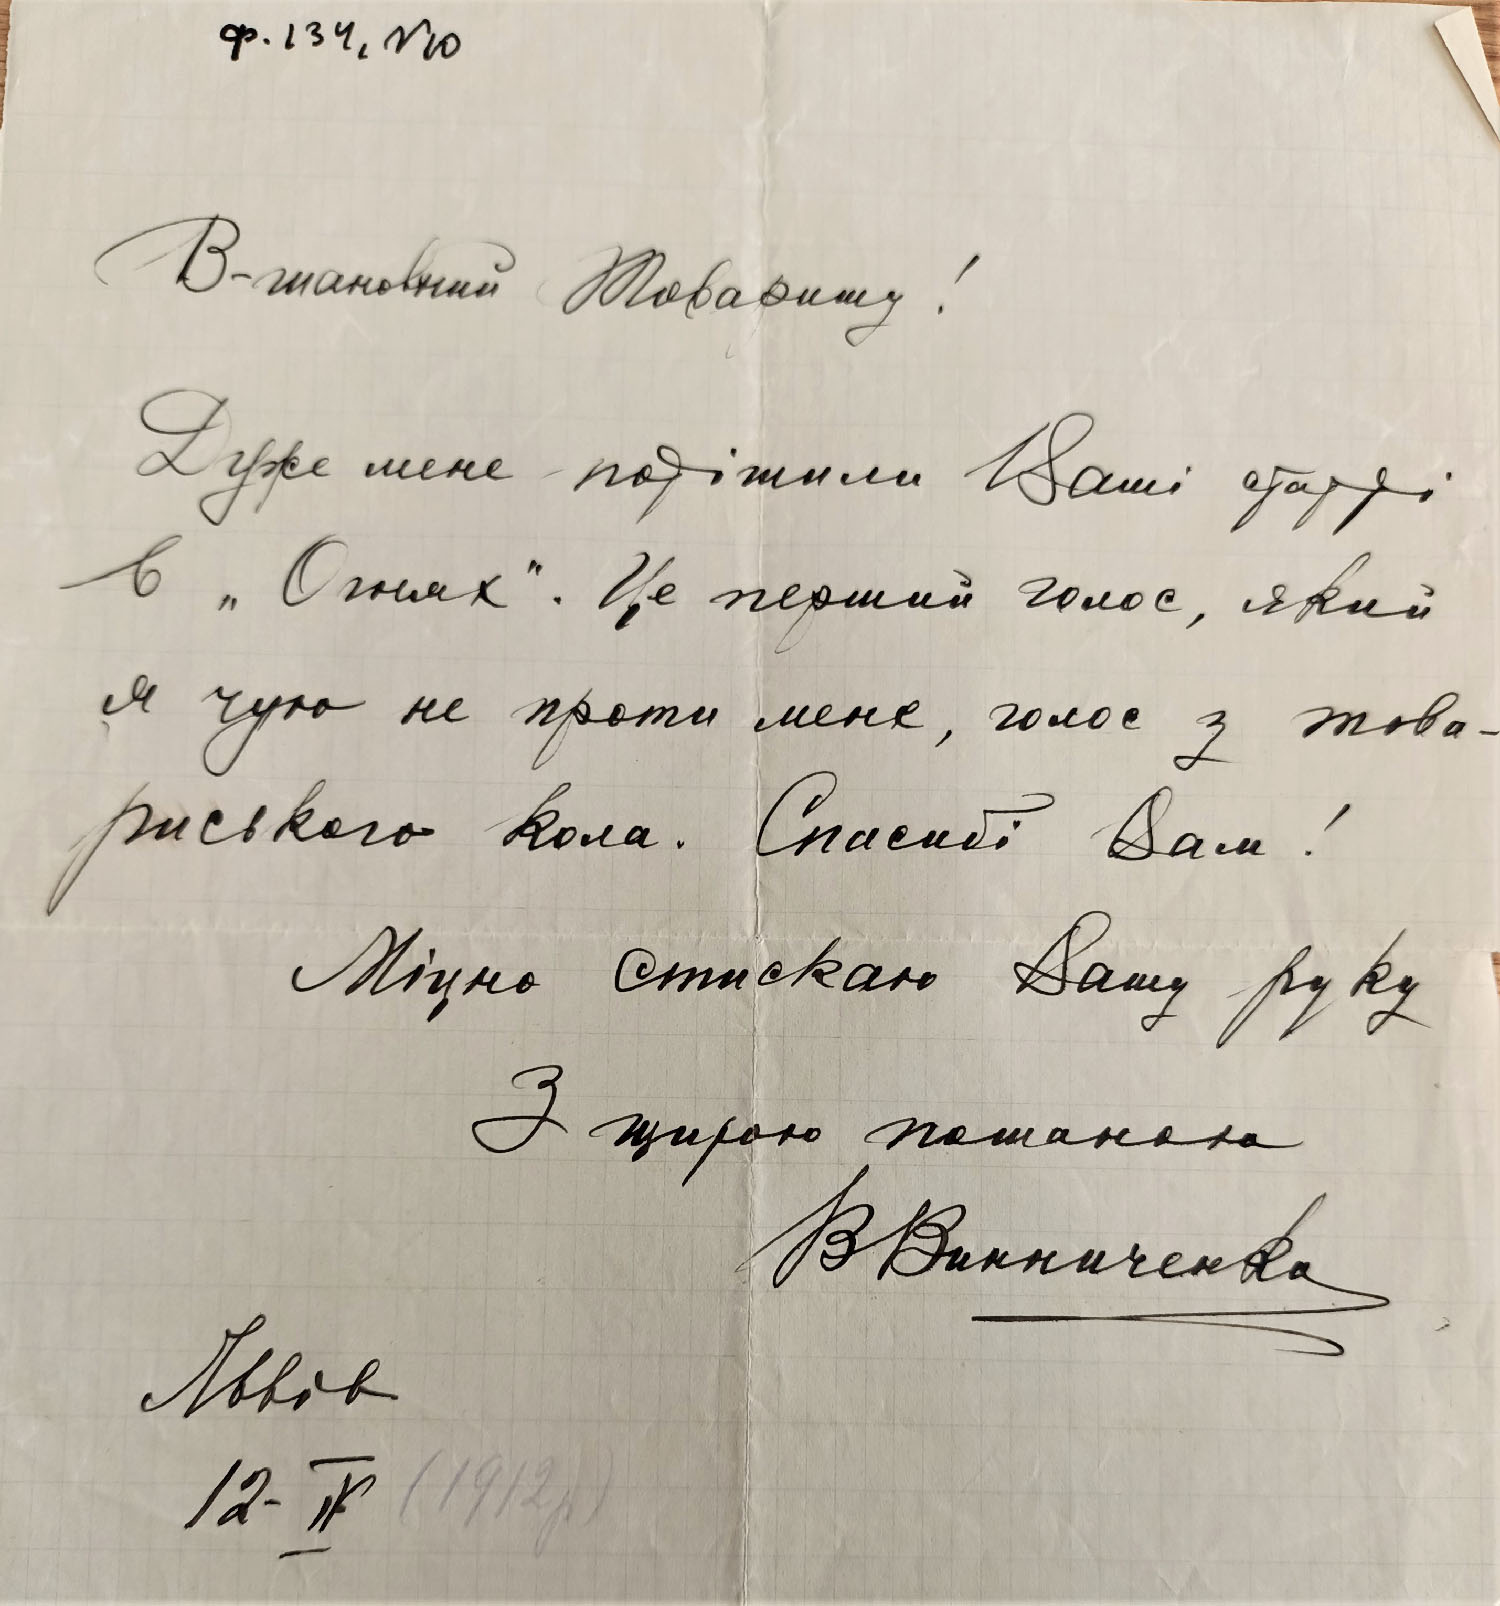 ф. 134, №10
В-шановний Товаришу!
Дуже мене потішили Ваші статті
в „Огнях". Це перший голос, який
я чую не проти мене, голос з това-
риського кола. Спасибі Вам!
Міцно стискаю Вашу руку
З щирою пошаною
В Винниченко
Львів
12-IV (1912р)